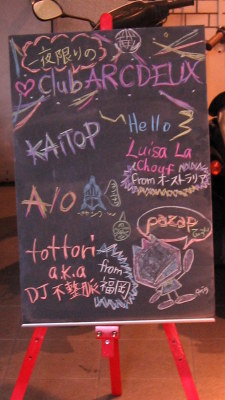 一夜限りの
Club ARCDEUX
KAiTOP
Hello
Luisa La
Chouf
from オーストラリア
A/O
tottori
a.k.a
DJ 不整脈
from
福岡
pazap